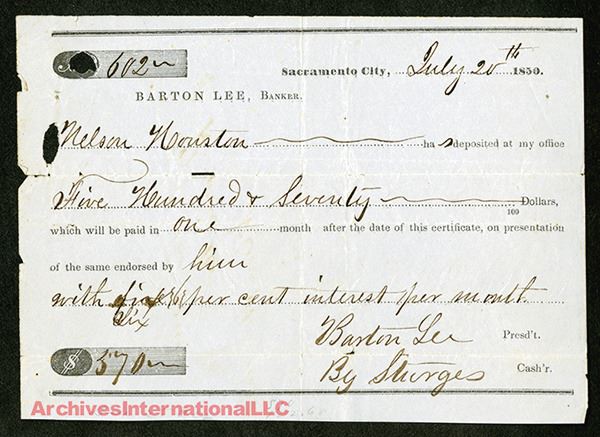 602
Sacramento City, July 20th 1850.
BARTON LEE, BANKER.
Nelson Houston has deposited at my office
Five Hundred & Seventy 100 Dollars,
which will be paid in one month after the date of this certificate, on presentation
of the same endorsed by him
with (6) per cent interest per month
Six
Barton Lee Presd't.
$ 570 By Sturges Cash'r.
ArchivesInternationalLLC